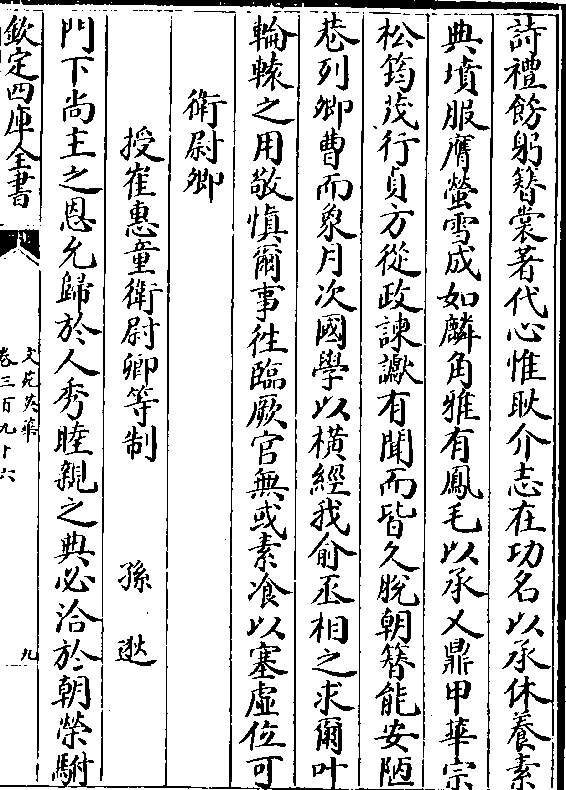 詩禮飭躬簪裳著代心惟耿介志在功名以承休養素
典墳服膺螢雪成如麟角雅有鳳毛以承乂鼎甲華宗
松筠茂行貞方從政諫讞有聞而皆久脫朝簪能安陋
巷列卿曹而象月次國學以橫經我俞丞相之求爾叶
輪轅之用敬慎爾事徃臨厥官無或素飡以塞虛位可
衛尉卿
授崔惠童衛尉卿等制　孫逖
門下尚主之恩允歸於人秀睦親之典必洽於朝榮駙
欽定四庫全書
文苑英華
卷三百九十六
九